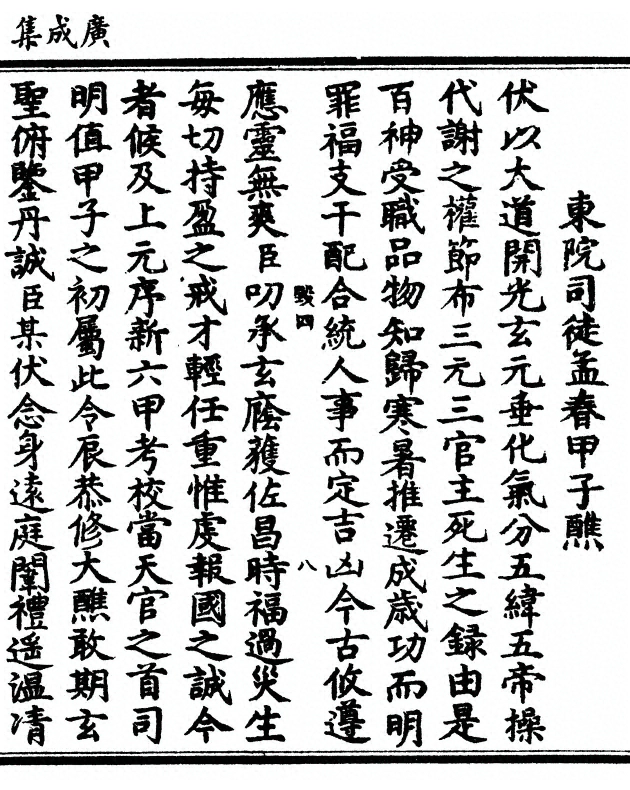 廣成集
東院司徒孟春甲子醮
伏以大道開光玄元垂化氣分五緯五帝操
代謝之權節布三元三官主死生之錄由是
百神受職品物知歸寒暑推遷成歲功而明
罪福支干配合統人事而定吉凶今古攸遵
毀四 八
應靈無爽臣叨承玄廕獲佐昌時福過災生
每切持盈之戒才輕任重惟虔報國之誠今
者候及上元序新六甲考校當天官之首司
明值甲子之初屬此令辰恭修大醮敢期玄
聖俯鑒丹誠臣某伏念身遠庭闈禮遥溫凊